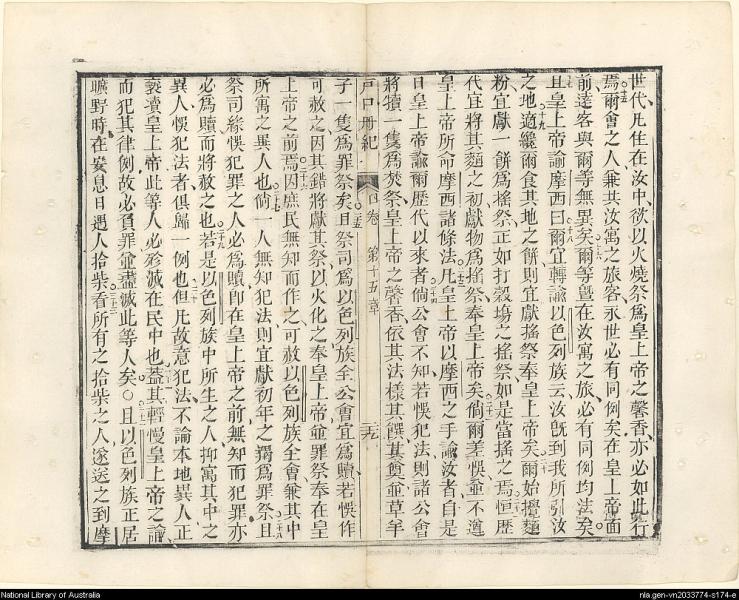 世代凡住在汝中欲以火燒祭爲皇上帝之馨香亦必如此行
焉十五爾會之人兼其汝寓之旅客永世必有同例矣在皇上帝面
前遠客與爾等無異矣十六爾等曁在汝寓之旅必有同例均法矣
十七且皇上帝諭摩西曰十八爾宜轉諭以色列族云汝旣到我所引汝
之地十九適纔爾食其地之餅則宜獻搖祭奉皇上帝矣二十爾始擾麵
粉宜獻一餅爲搖祭正如打穀塲之搖祭如是當搖之焉二一恒歷
代宜將其麵之初獻物爲搖祭奉皇上帝矣二二倘爾差悞並不遵
皇上帝所命摩西諸條法二三凡皇上帝以摩西之手諭汝者自是
日皇上帝諭爾歷代以來者二四倘公會不知若悞犯法則諸公會
將犢一隻爲焚祭皇上帝之馨香依其法樣其饌其奠並草羊
戶口册紀 四卷 第十五章 三九
子一隻爲罪祭矣二五且祭司爲以色列族全公會宜爲贖若悞作
可赦之因其錯將獻其祭以火化之奉皇上帝並罪祭奉在皇
上帝之前焉二六因庶民無知而作之可赦以色列族全會兼其中
所寓之異人也二七倘一人無知犯法則宜獻初年之羯爲罪祭二八且
祭司緣悞犯罪之人必爲贖卽在皇上帝之前無知而犯罪亦
必爲贖而將赦之也二九若是以色列族中所生之人抑寓其中之
異人悞犯法者俱歸一例也三十但凡故意犯法不論本地異人正
褻瀆皇上帝此等人必殄滅在民中也三一葢其輕慢皇上帝之諭
而犯其律例故必負罪並盡滅此等人矣○三二且以色列族正居
曠野時在安息日遇人拾柴三三看所有之拾柴之人遂送之到摩
National Library of Australia
nla.gen-vn2033774-s174-e